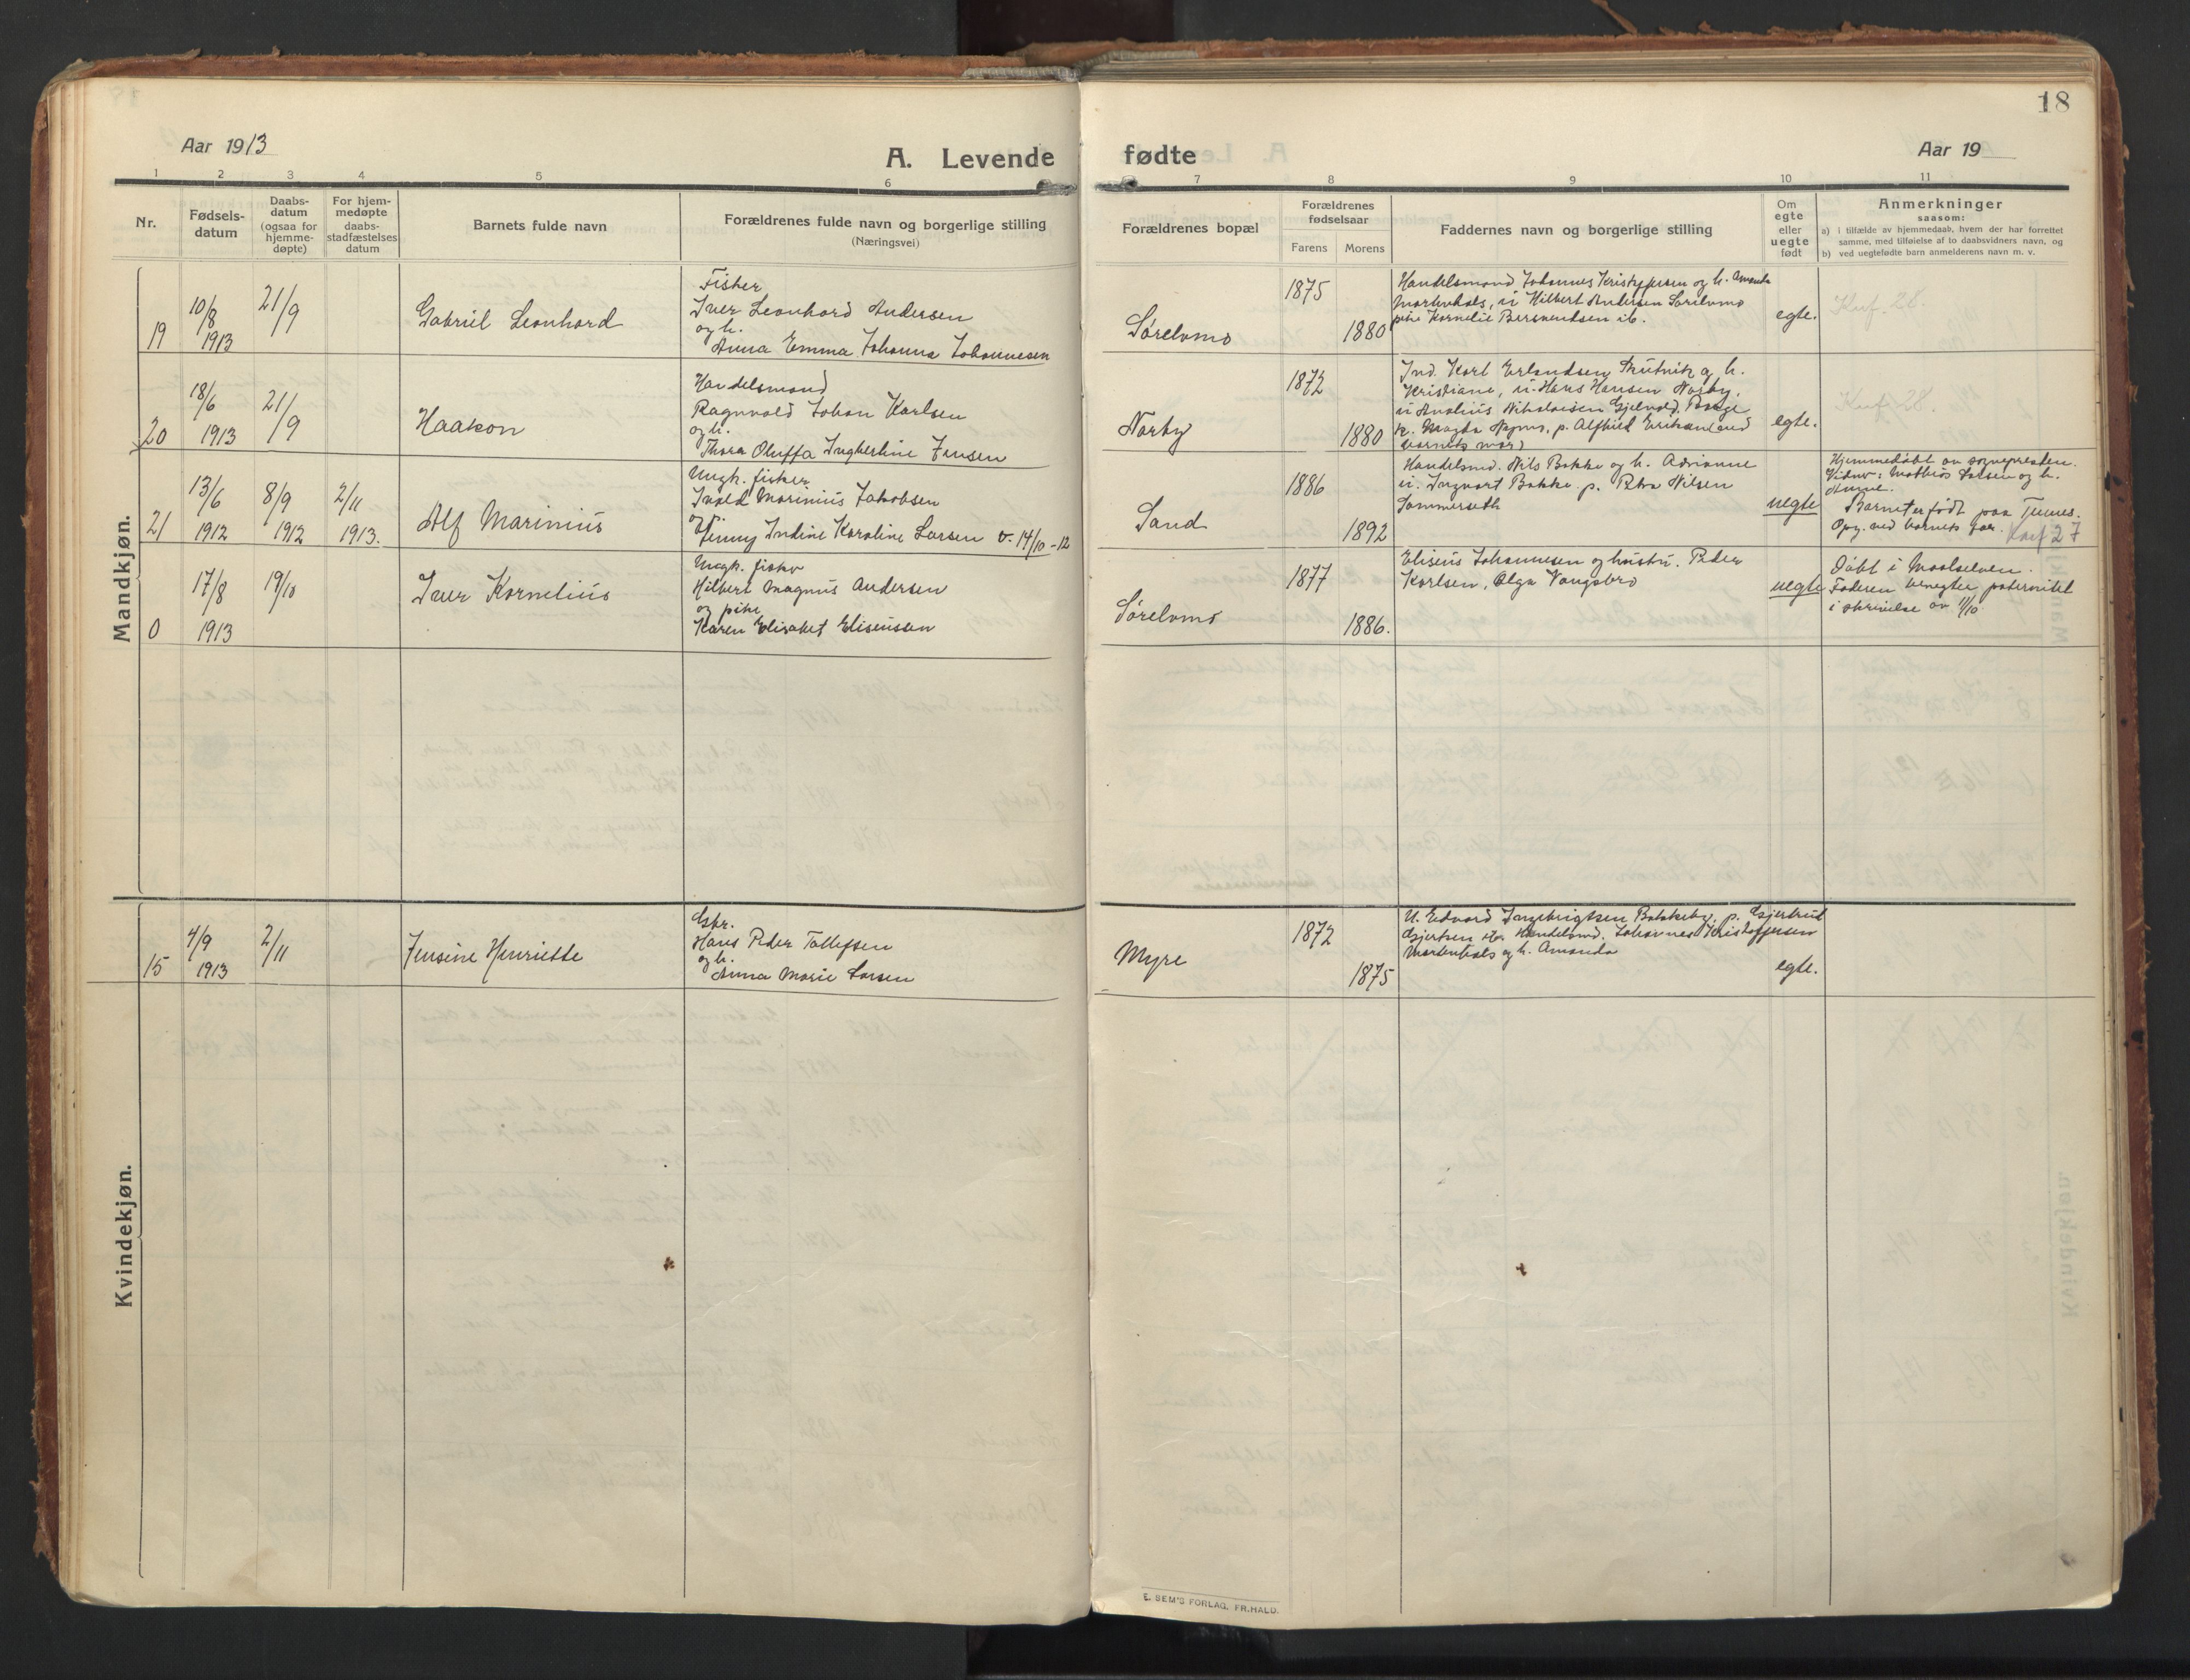 18
Aar 1913
A. Levende fødte
Aar 19
1 2 3 4 5 6 7 8 9 10 11
Nr.
Fødsels-
datum
Daabs-
datum
(ogsaa for
hjemme-
døpte)
For hjem-
medøpte
daabs-
stadfæstelses
datum
Barnets fulde navn
Forældrenes fulde navn og borgerlige stilling
(Næringsvei)
Forældrenes bopæl
Forældrenes
fødselsaar
Farens Morens
Faddernes navn og borgerlige stilling
Om
egte
eller
uegte
født
Anmerkninger
saasom:
a) i tilfælde av hjemmedaab, hvem der har forrettet
samme, med tilføielse af to daabsvidners navn, og
b) ved uegtefødte barn anmelderens navn m. v.
Mandkjøn.
19
10/8
1913
21/9
Gabriel Leonhard
Fisker
Iver Leonhard Andersen
og h.
Anna Emma Johanna Johannesen
Sørelvmo
1875
1880
Handelsmand Johannes Kristoffersen og h. Amanda
Mortenhals, u Hilbert Andersen Sørelvmo
pike Kornelie Berntsen ib.
egte.
Knf. 28.
20
18/6
1913
21/9
Haakon
Handelsmand
Ragnvald Johan Karlsen
og h.
Thora Oluffa Ingberline Jensen
Norby
1872
1880
Ind. Karl Erlandsen Trutvik og h.
Kristiane, u. Hans Hansen Norby,
u Analius Nikolaisen
k. Magda p. Alfhild
barnets mor)
egte.
Knf. 28.
21
13/6
1912
8/9
1912
2/11
1913.
Alf Marinius
Ungk. fisker
Marinius Jakobsen
og
Jenny Indine Karoline Larsen v. 14/10-12
Sand
1886
1892
Handelsmd. Nils Bakke og h. Adrianne
u. Ingvart Bakke p. Petra Nilsen
Sommerseth
uegte
Hjemmedøbt av sognepresten.
Vidner: Mathias Larsen og h.
Anne.
Barnet er født paa Tennes.
Opg. ved barnets far. Knf 27
0
17/8
1913
19/10
Iver Kornelius
Ungk. fisker
Hilbert Magnus Andersen
og pike
Karen Elisabet Eliseussen
Sørelvmo
1877
1886.
Eliseus Johannesen og hustru. Peder
Karlsen, Olga Vangsbro
uegte
Døbt i Maalselven.
Faderen benegter paternitet
i skrivelse av 11/10
Kvindekjøn.
15
4/9
1913
2/11
Jensine Henriette
Gbr.
Hans Peder Tollefsen
og h.
Anna Marie Larsen
Myre
1872
1875
U. Edvard Ingebrigtsen Bakkeby, p. Gjertrud
Gjertsen Handelsmd. Johannes Kristoffersen
Mortenhals og h. Amanda
egte.
E. SEM'S FORLAG, FR.HALD.